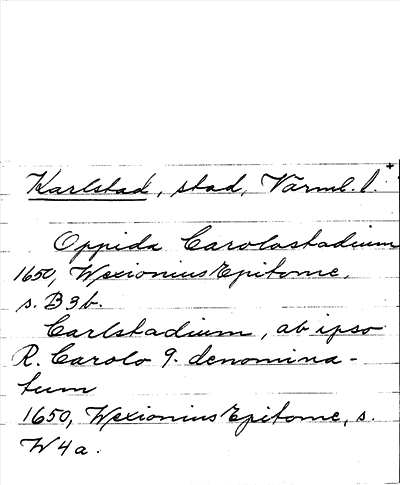 +
Karlstad, stad, Värml. l.
Oppida Carolostadium
1650, Wexionius Epitome,
s. B3b.
Carlstadium, ab ipso
R. Carolo 9. denomina-
tum
1650, Wexionius Epitome, s.
W4a.